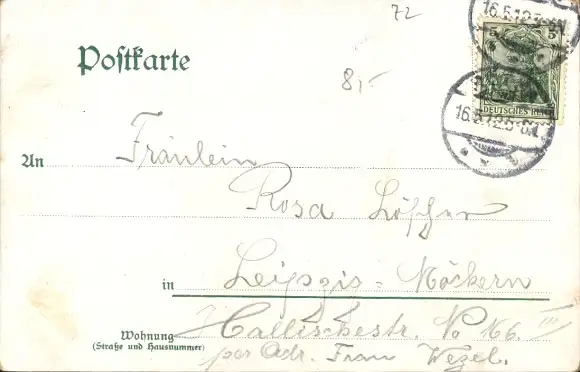 72
16.5.12.5-6N.
Postkarte
5 5
8,-
DEUTSCHES REICH
16.5.12.5-6N.
An Fräulein
Rosa Löscher
in Leipzig-Möckern
Hallischestr. No 166. III
Wohnung
(Straße und Hausnummer)
per Adr. Frau Wezel.